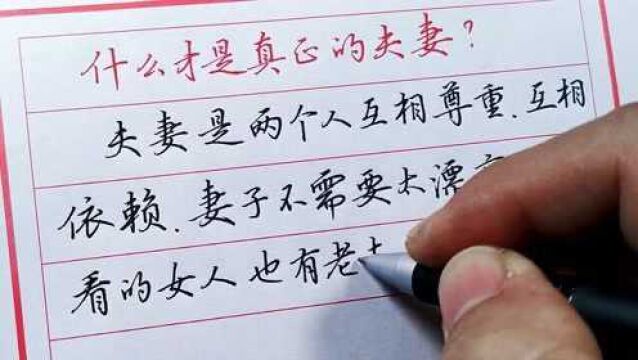 什么才是真正的夫妻？
夫妻是两个人互相尊重.互相
依赖.妻子不需要太漂
看的女人也有老